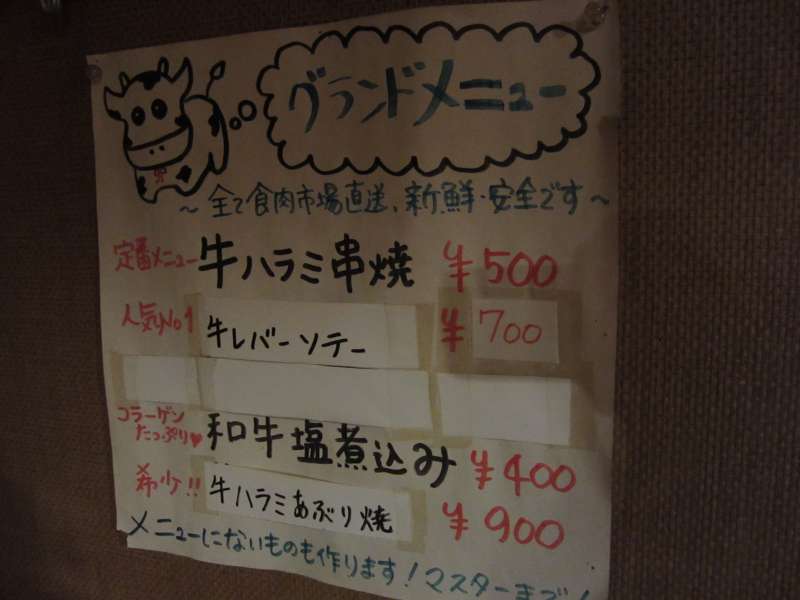 グランドメニュー
～全て食肉市場直送、新鮮・安全です～
定番メニュー 牛ハラミ串焼 ¥500
人気No1 牛レバーソテー ¥700
コラーゲン
たっぷり♥ 和牛塩煮込み ¥400
希少!! 牛ハラミあぶり焼 ¥900
メニューにないものも作ります！マスターまで！